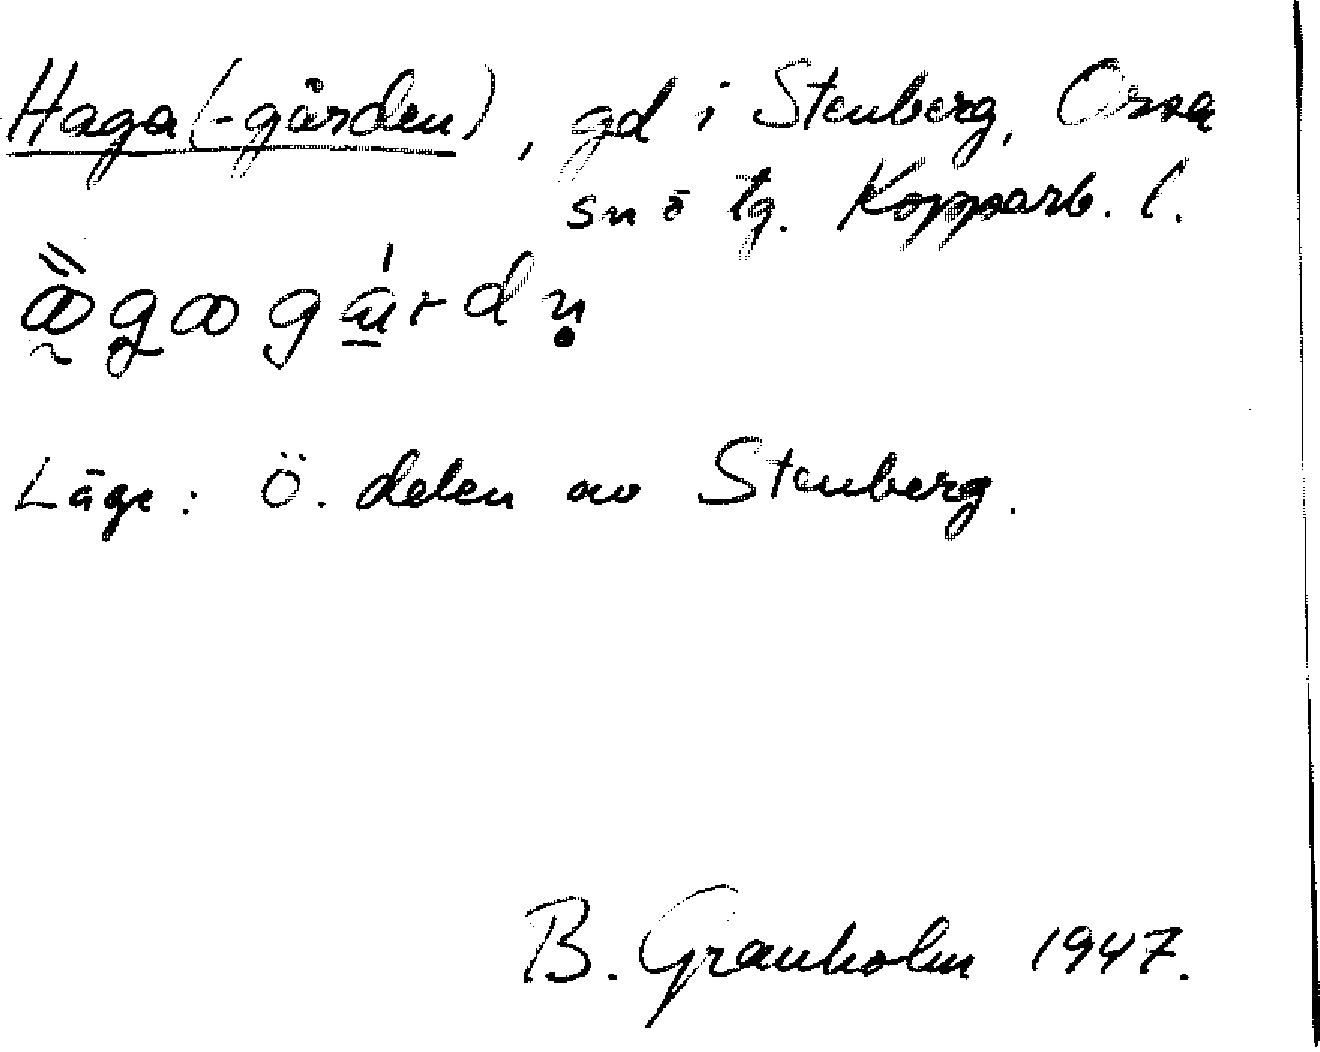 Haga(-gården), gd i Stenberg, Orsa
sn o tg. Kopparb. l.
Läge: Ö. delen av Stenberg.
B. Granholm 1947.